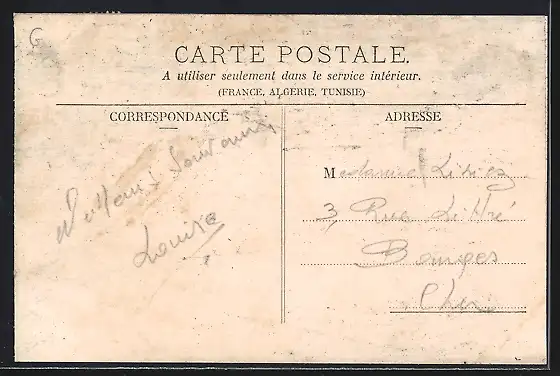 G
CARTE POSTALE.
A utiliser seulement dans le service intérieur.
(FRANCE, ALGERIE, TUNISIE)
CORRESPONDANCE
Meilleurs Souvenirs
Louise
ADRESSE
Madame
3, Rue Littré
Bourges
Cher